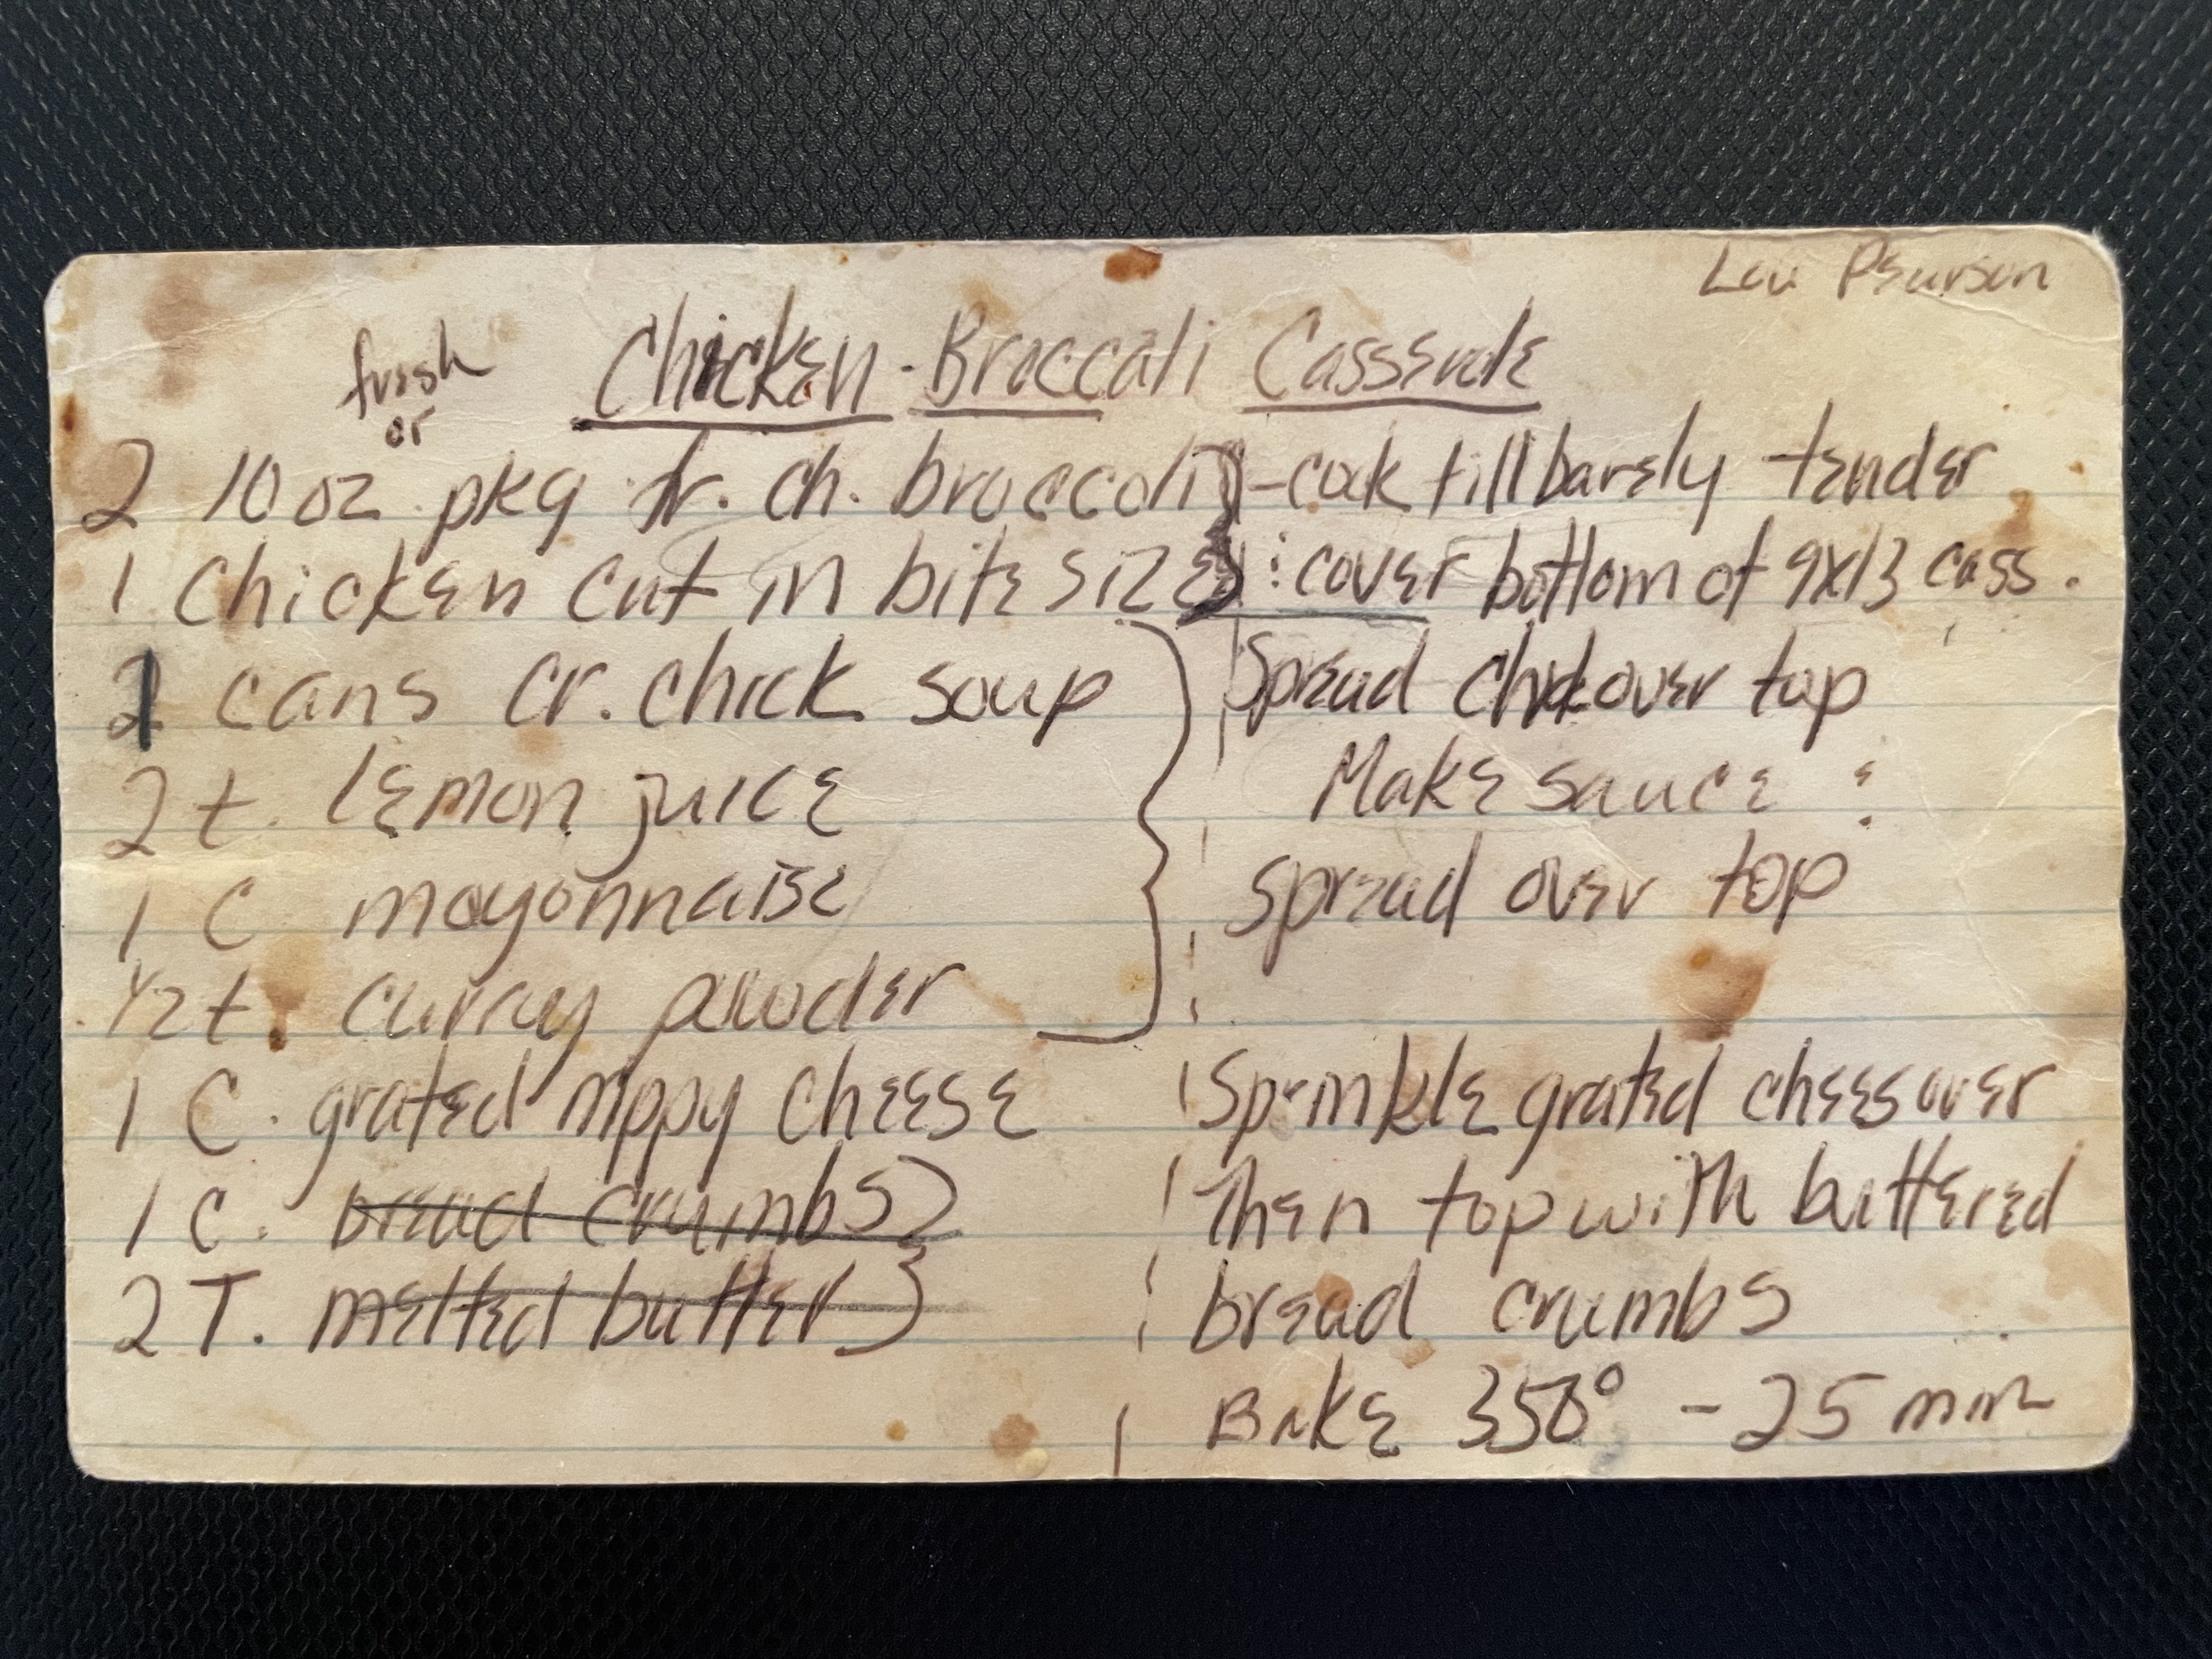 Lou Pearson
fresh
or
Chicken - Broccoli Casserole
2 10 oz pkg fr. ch. broccoli } - cook till barely tender
1 chicken cut in bite size : cover bottom of 9x13 cass.
cans cr. chick soup
Spread chick over top
2 t. lemon juice
Make sauce :
1 C mayonnaise
spread over top
1/2 t. curry powder
1 C. grated nippy cheese
Sprinkle grated chees over
1 C. bread crumbs }
Then top with buttered
2 T. melted butter }
bread crumbs
Bake 350° - 25 min